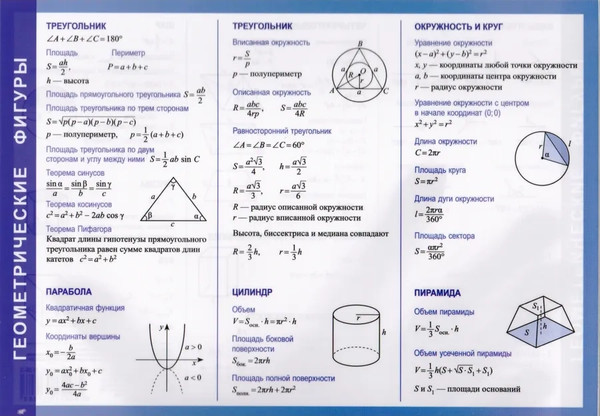 ГЕОМЕТРИЧЕСКИЕ ФИГУРЫ
ТРЕУГОЛЬНИК
∠A+∠B+∠C=180°
Площадь Периметр
S=ah/2, P=a+b+c
h — высота
Площадь прямоугольного треугольника S=ab/2
Площадь треугольника по трем сторонам
S=√p(p−a)(p−b)(p−c)
p — полупериметр, p=1/2(a+b+c)
Площадь треугольника по двум
сторонам и углу между ними S=1/2 ab sin C
Теорема синусов
sinα/a = sinβ/b = sinγ/c
Теорема косинусов
c²=a²+b²−2ab cos γ
a b c α β γ
Теорема Пифагора
Квадрат длины гипотенузы прямоугольного
треугольника равен сумме квадратов длин
катетов c²=a²+b²
ТРЕУГОЛЬНИК
Вписанная окружность
r=S/p
p — полупериметр
A B C a a a R O r
Описанная окружность
R=abc/4rp, S=abc/4R
Равносторонний треугольник
∠A=∠B=∠C=60°
S=a²√3/4, h=a√3/2
R=a√3/3, r=a√3/6
R — радиус описанной окружности
r — радиус вписанной окружности
Высота, биссектриса и медиана совпадают
R=2/3h, r=1/3h
ОКРУЖНОСТЬ И КРУГ
Уравнение окружности
(x−a)²+(y−b)²=r²
x, y — координаты любой точки окружности
a, b — координаты центра окружности
r — радиус окружности
Уравнение окружности с центром
в начале координат (0;0)
x²+y²=r²
Длина окружности
C=2πr
Площадь круга
S=πr²
r α l
Длина дуги окружности
l=2πrα/360°
Площадь сектора
S=απr²/360°
ПАРАБОЛА
Квадратичная функция
y=ax²+bx+c
Координаты вершины
x₀=−b/2a
y₀=ax₀²+bx₀+c
y₀=4ac−b²/4a
y
a>0
x
a<0
ЦИЛИНДР
Объем
V=Sосн.·h=πr²·h
Площадь боковой
поверхности
Sбок.=2πrh
Площадь полной поверхности
Sполн.=2πrh+2πr²
r
h
ПИРАМИДА
Объем пирамиды
V=1/3S·h
Объем усеченной пирамиды
V=1/3h(S+√S·S₁+S₁)
S и S₁ — площади оснований
S₁
S
h